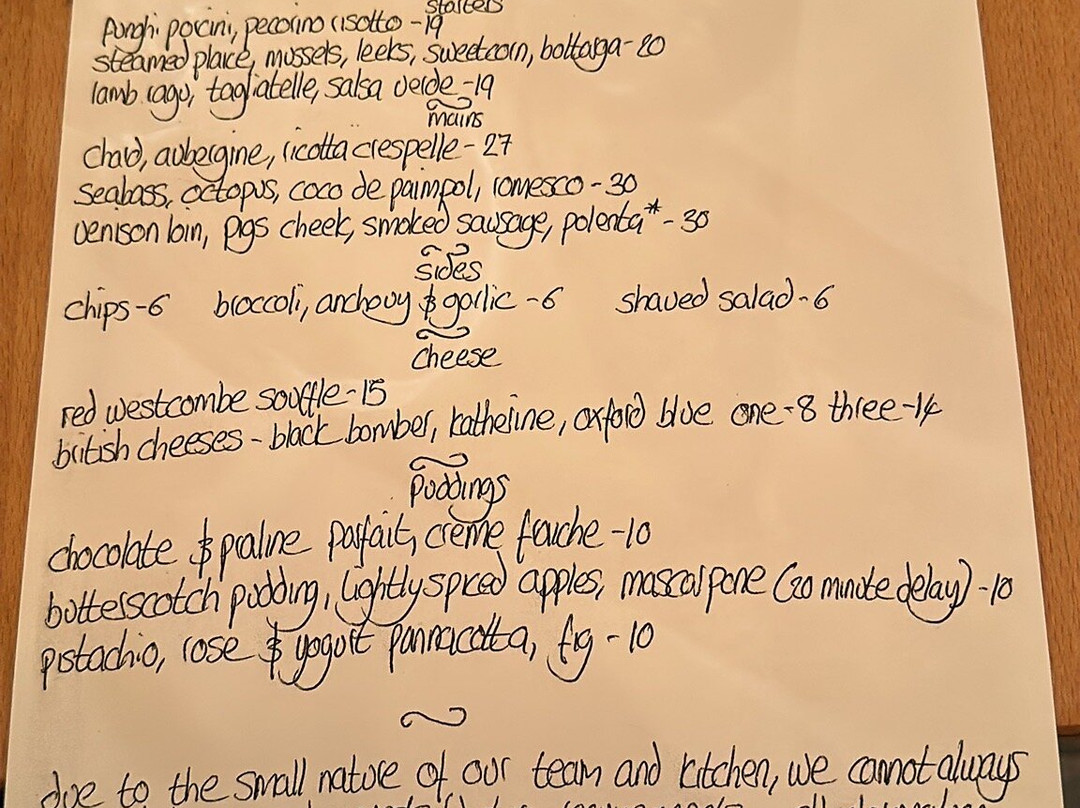 starters
funghi porcini, pecorino risotto - 19
steamed plaice, mussels, leeks, sweetcorn, bottarga - 20
lamb ragu, tagliatelle, salsa verde - 19
mains
chard, aubergine, ricotta crespelle - 27
seabass, octopus, coco de paimpol, romesco - 30
venison loin, pigs cheek, smoked sausage, polenta* - 30
sides
chips - 6 broccoli, anchovy & garlic - 6 shaved salad - 6
cheese
red westcombe souffle - 15
british cheeses - black bomber, katherine, oxford blue one - 8 three - 14
puddings
chocolate & praline parfait, creme fraiche - 10
butterscotch pudding, lightly spiced apples, mascarpone (20 minute delay) - 10
pistachio, rose & yogurt pannacotta, fig - 10
due to the small nature of our team and kitchen, we cannot always